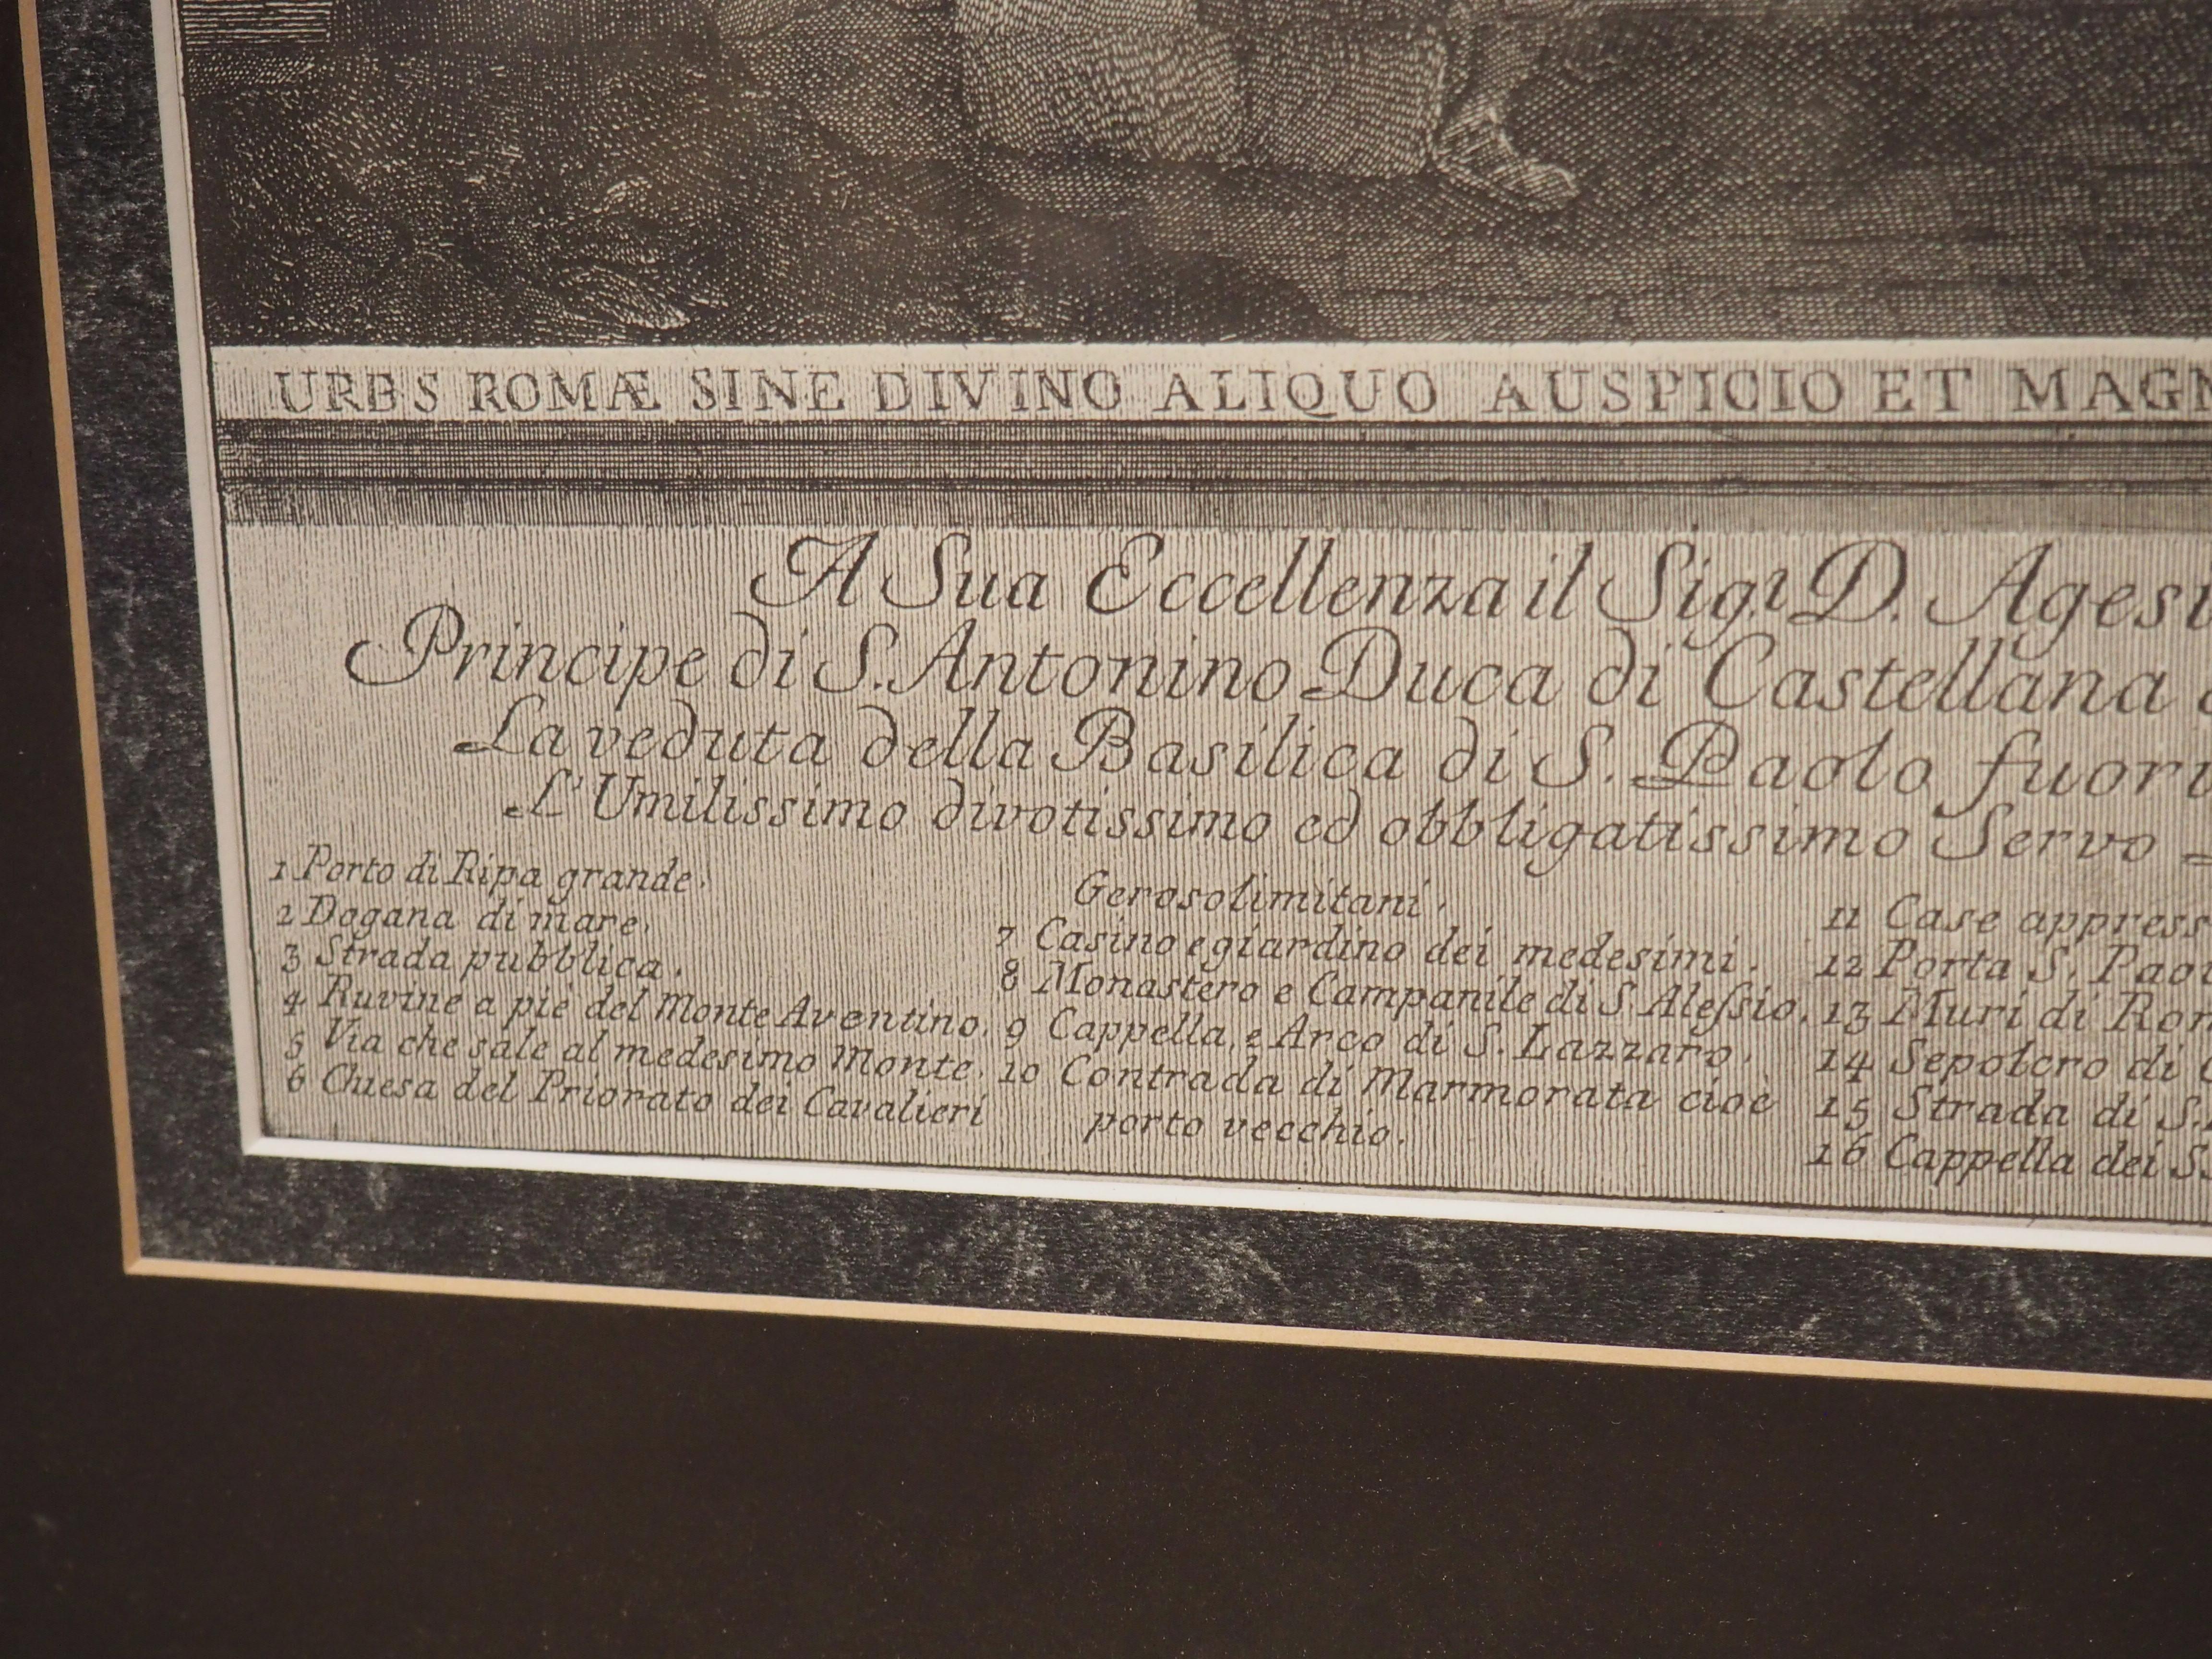 URBS ROMÆ SINE DIVINO ALIQUO AUSPICIO ET MAGN
A Sua Eccellenza il Sig.r D. Agesi
Principe di S. Antonino Duca di Castellana
La veduta della Basilica di S. Paolo fuori
L'Umilissimo divotissimo ed obbligatissimo Servo
1 Porto di Ripa grande.
2 Dogana di mare.
3 Strada pubblica.
4 Ruvine a piè del Monte Aventino.
5 Via che sale al medesimo Monte.
6 Chiesa del Priorato dei Cavalieri
Gerosolimitani.
7 Casino e giardino dei medesimi.
8 Monastero e Campanile di S. Aleſsio.
9 Cappella, e Arco di S. Lazzaro.
10 Contrada di Marmorata cioè
porto vecchio.
11 Case appress
12 Porta S. Pao
13 Muri di Rom
14 Sepolcro di C
15 Strada di S.
16 Cappella dei S.